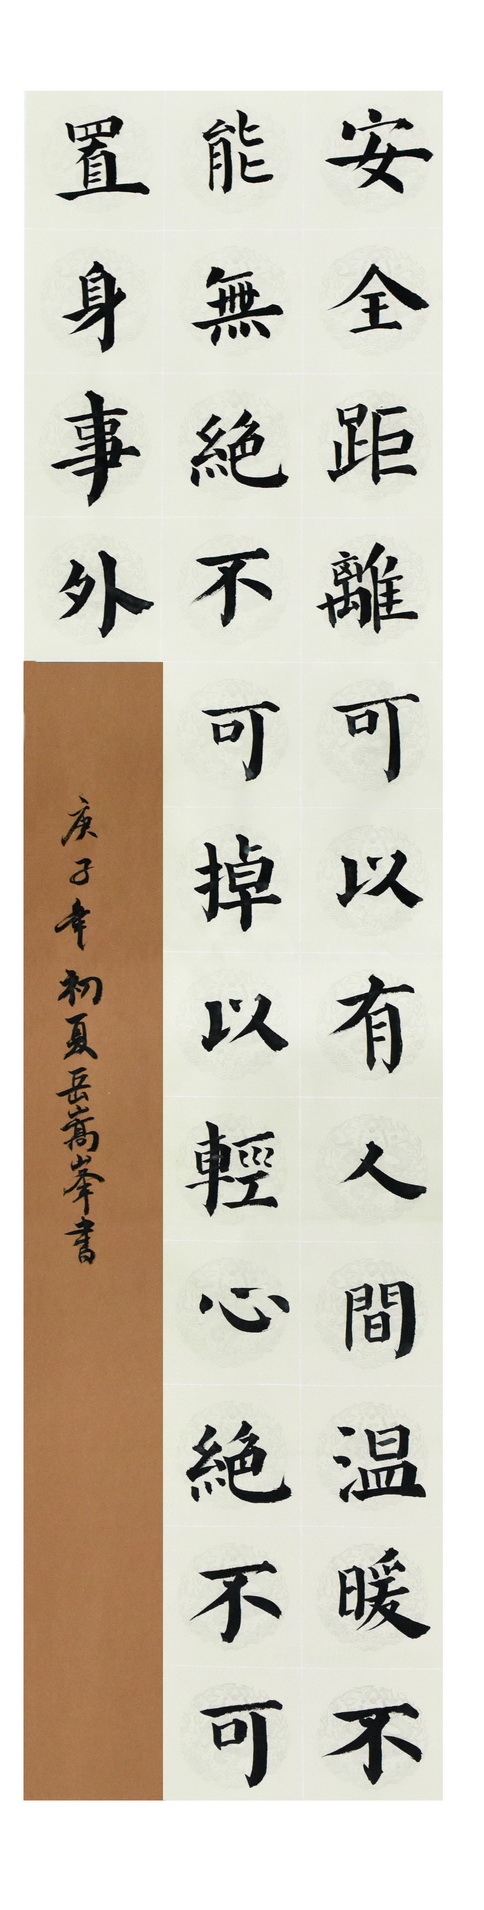 安全距離可以有人間温暖不
能無絶不可掉以輕心絶不可
置身事外
庚子年初夏岳嵩峯書